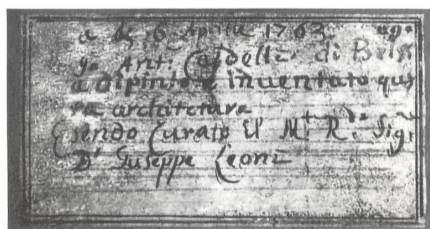 a di 6 Aprile 1763
g. Ant: Caldelli di Briss
a dipinto e inventato ques
ta architetura
Esendo Curato il M:t R:do Sig:r
D: Giuseppe Leoni